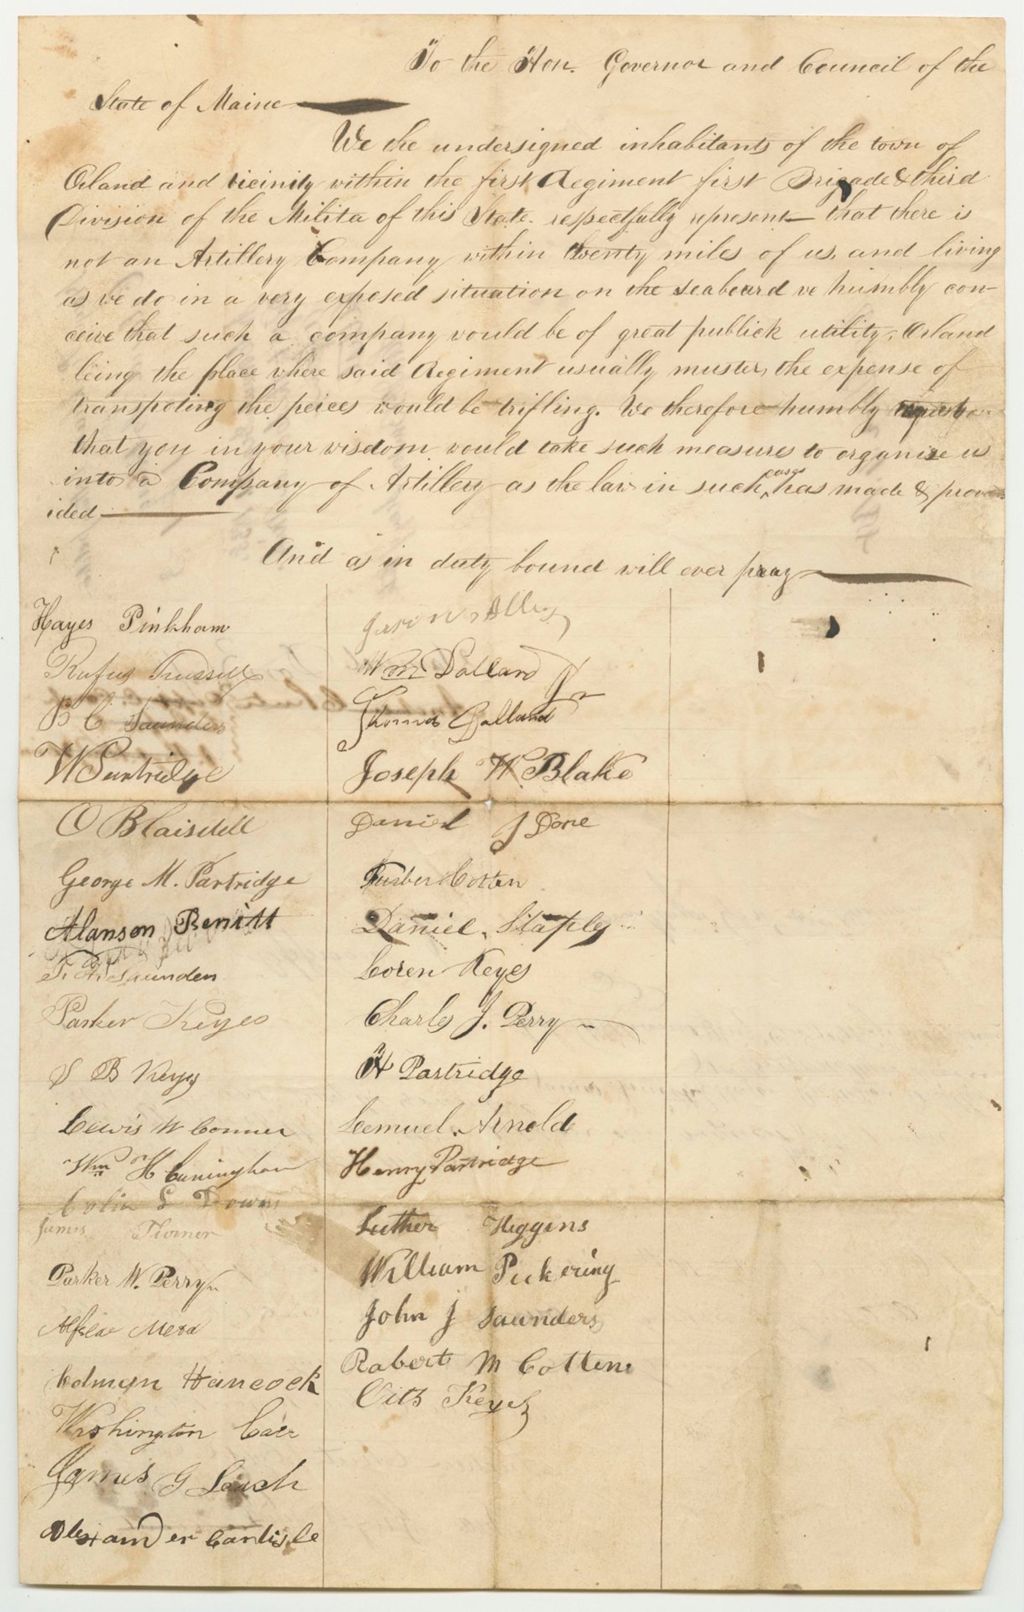 To the Hon. Governor and Council of the
State of Maine
We the undersigned inhabitants of the town of
Orland and vicinity within the first Regiment first Brigade & third
Division of the Milita of this State respectfully represent that there is
not an Artillery Company within twenty miles of us, and living
as we do in a very exposed situation on the seaboard we humbly con-
ceive that such a company would be of great publick utility, Orland
being the place where said Regiment usually muster, the expense of
transpoting the peices would be trifling. We therefore humbly request
that you in your wisdom would take such measures to organize us
into a Company of Artillery as the law in such case has made & prov-
ided
And as in duty bound will ever pray
Hayes Pinkham
Rufus Trussell
B C Saunders
W Partridge
O Blaisdell
George M. Partridge
Alanson Benitt
Saunders
Parker Keyes
S B Keyes
Lewis W Conner
Wm H Cuningham
Colin S Downs
James
Parker W. Perry
Mead
Edmyn Hancock
Washington Carr
James G Leach
Alexander Carlisle
Wm Dollard Jr
Thomas Dollard
Joseph W. Blake
Daniel J Dore
Furber Cotten
Daniel Staples
Loren Keyes
Charles J. Perry
H Partridge
Lemuel Arnold
Henry Partridge
Luther Higgens
William Pickering
John J Saunders
Robert M Cotten
Otis Keyes